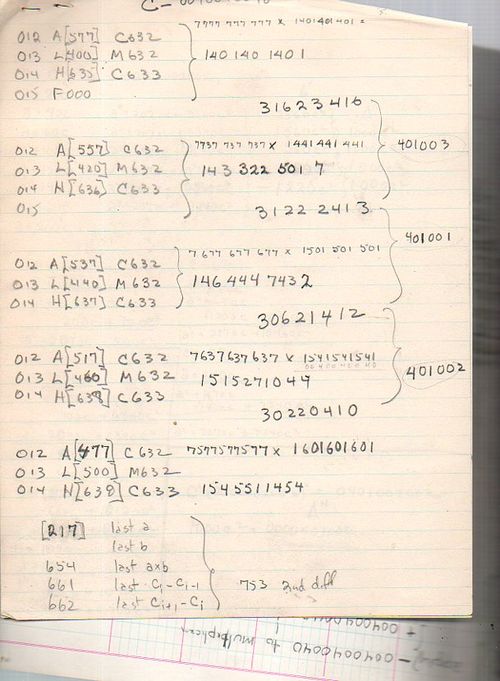 7777 777 777 x 1401401401 =
012 A[577] C632
013 L[400] M632 140 140 140 1
014 H[635] C633
015 F000
31623416
401003
012 A[557] C632 7737 737 737 x 1441 441 441
013 L[420] M632 143 322 501 7
014 H[636] C633
015
3122 2413
401001
012 A[537] C632 7677 677 677 x 1501 501 501
013 L[440] M632 146 444 743 2
014 H[637] C633
30621412
401002
012 A[517] C632 7637637637 x 1541541541
013 L[460] M632 1515271044
014 H[638] C633
30220410
012 A[477] C632 7577577577 x 1601601601
013 L[500] M632
014 H[639] C633 1545511454
[217] last a
last b
654 last axb
661 last Ci-Ci-1
662 last Ci+1-Ci
753 2nd diff
0040040040 to multiplican